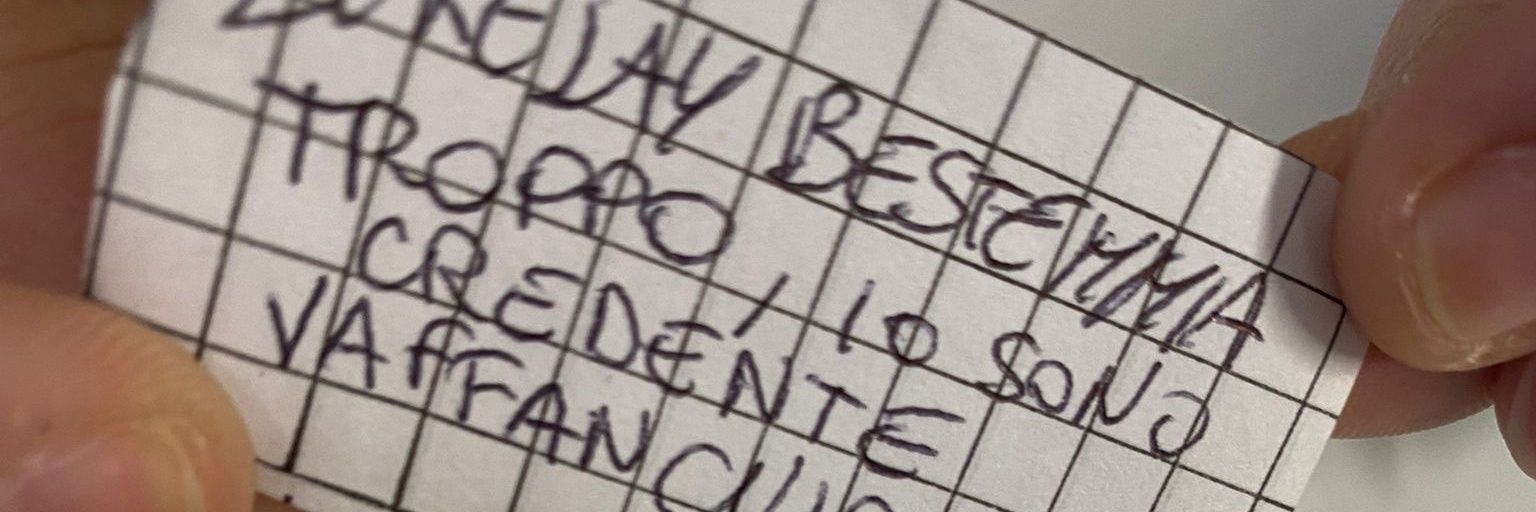 BESTEMMIA
TROPPO, IO SONO
CREDENTE
VAFFANCULO